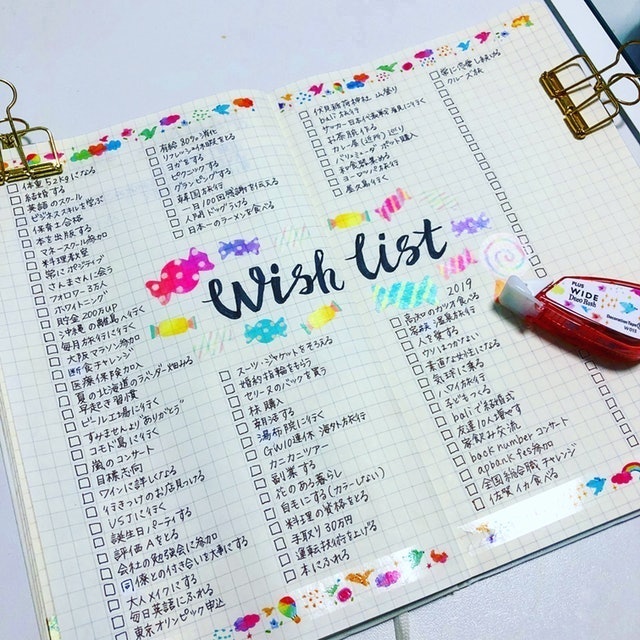 体重52kgになる
結婚する
英語のスクール
ビジネススキルを学ぶ
保育士合格
本を出版する
マネースクール参加
料理教室
常にポジティブ
さんまさんに会う
フォロワー3万人
ホワイトニング
貯金200万UP
沖縄の離島へ行く
毎月旅行に行く
大阪マラソン参加
断食チャレンジ
医療保険加入
夏の北海道のラベンダー畑みる
早起き習慣
ビール工場に行く
すみませんより"ありがとう"
コモド島に行く
嵐のコンサート
目標志向
ワインに詳しくなる
行きつけのお店見つける
USJに行く
誕生日パーティする
評価Aをとる
会社の勉強会に参加
同僚との付き合いを大事にする
大人メイクにする
毎日英語にふれる
東京オリンピック申込
有給80%消化
リフレッシュ休暇をとる
ヨガをする
ピクニックする
グランピングする
韓国旅行
一日100回感謝を伝える
人間ドックうける
日本一のラーメンを食べる
wish list
スーツ・ジャケットをそろえる
婚約指輪をもらう
セリーヌのバックを買う
株購入
朝活する
湯布院に行く
GW10連休 海外旅行
カニカニツアー
副業する
花のある暮らし
自毛にする(カラーしない)
料理の資格をとる
手取り30万円
運転技術を上げる
本にふれる
伏見稲荷神社 山登り
bali 旅行
サッカー日本代表戦を見に行く
お茶届けする
カレー屋(近所)巡り
バーミキュラポット購入
和食器集める
ヨーロッパ旅行
屋久島行く
常に恋愛し続ける
クルーズ旅
2019
高知のカツオ食べる
家族で温泉旅行
人を愛す
ウソはつかない
素直な女性になる
気球に乗る
ハワイ旅行
子どもつくる
baliで結婚式
友達10人増やす
家族と交流
back number コンサート
apbank fes参加
全国給食職チャレンジ
佐賀イカ食べる
PLUS
WIDE
Deco Rush
Decoration Tape